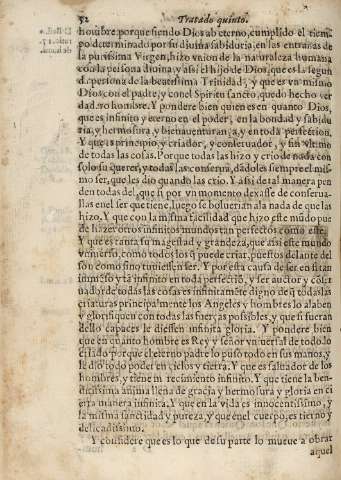 52
Tratado quinto.
hombre, porque siendo Dios ab eterno, cumplido el tiem-
po determinado por su diuina sabiduria, en las entrañas de
la purissima Virgen, hizo vnion de la naturaleza humana
con la persona diuina, y assi el hijo de Dios, que es la segun
da persona de la beatissima Trinidad, y que es vn mismo
Dios con el padre, y con el Spiritu sancto, quedo hecho ver
dadero hombre. Y pondere bien quien es en quanto Dios,
que es infinito y eterno en el poder, en la bondad y sabidu
ria, y hermosura, y bienauenturança, y en toda perfection.
Y que es principio, y criador, y conseruador, y fin vltimo
de todas las cosas. Porque todas las hizo y crio de nada con
solo su querer, y todas las conserua, dãdoles siempre el mis-
mo ser, que les dio quando las crio. Y assi de tal manera pen
den todas del, que si por vn momento dexasse de conserua-
llas en el ser que tiene, luego se boluerian ala nada de que las
hizo. Y que con la misma facilidad que hizo este mũdo pue
de hazer otros infinitos mundos tan perfectos como este.
Y que es tanta su magestad y grandeza, que assi este mundo
vniuerso, como todos los q̃ puede criar, puestos delante del
son como sino tuuiessen ser. Y por esta causa de ser en si tan
immẽso y tã infinito en toda perfectiõ, y ser auctor y cõser
uador de todas las cosas es infinitamẽte digno de q̃ todas las
criaturas principalmente los Angeles y hombres lo alaben
y glorifiquen con todas las fuerças possibles, y que si fueran
dello capaces le diessen infinita gloria. Y pondere bien
que en quanto hombre es Rey y señor vniuersal de todo lo
criado porque el eterno padre lo puso todo en sus manos, y
le dio todo poder en cielos y tierra. Y que es saluador de los
hombres, y tiene merecimiento infinito. Y que tiene la ben-
ditissima anima llena de gracia y hermosura y gloria en ci
erta manera infinita. Y que en la vida es innocentissimo, y
la misma sanctidad y pureza, y que en el cuerpo, es tierno y
delicadissimo.
Y considere que es lo que de su parte lo mueue a obrar
aquel